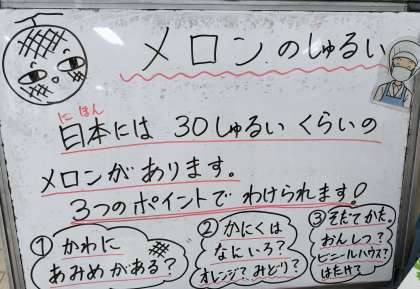 メロンのしゅるい
にほん
日本には 30しゅるいくらいの
メロンがあります。
3つのポイントでわけられます!
① かわに
あみめがある?
② かにくは
なにいろ?
オレンジ?みどり?
③ そだてかた。
おんしつ?
ビニールハウス?
はたけ?